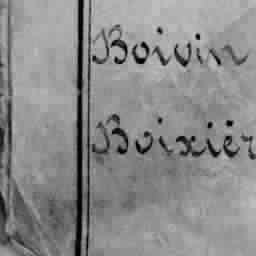 Boivin
Boixièr